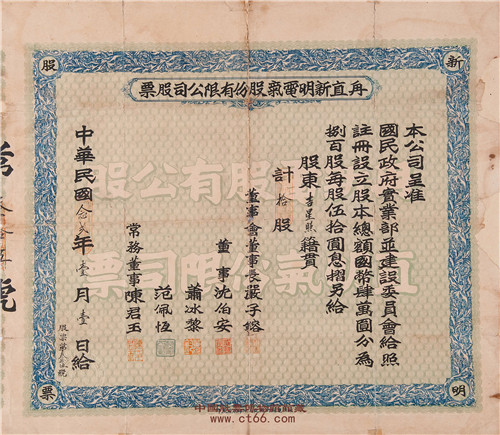 新
股
明
票
甪直新明電氣股份有限公司股票
本公司呈准
國民政府實業部並建設委員會給照
註冊設立股本總額國幣肆萬圓分為
捌百股每股伍拾圓息摺另給
股東 籍貫
計 拾 股
董事會董事長嚴子嫆
董事沈伯安
蕭冰黎
范佩恆
常務董事陳君玉
中華民國念貳年壹月壹日給
股票第 號
號
中國收藏網
www.ct66.com